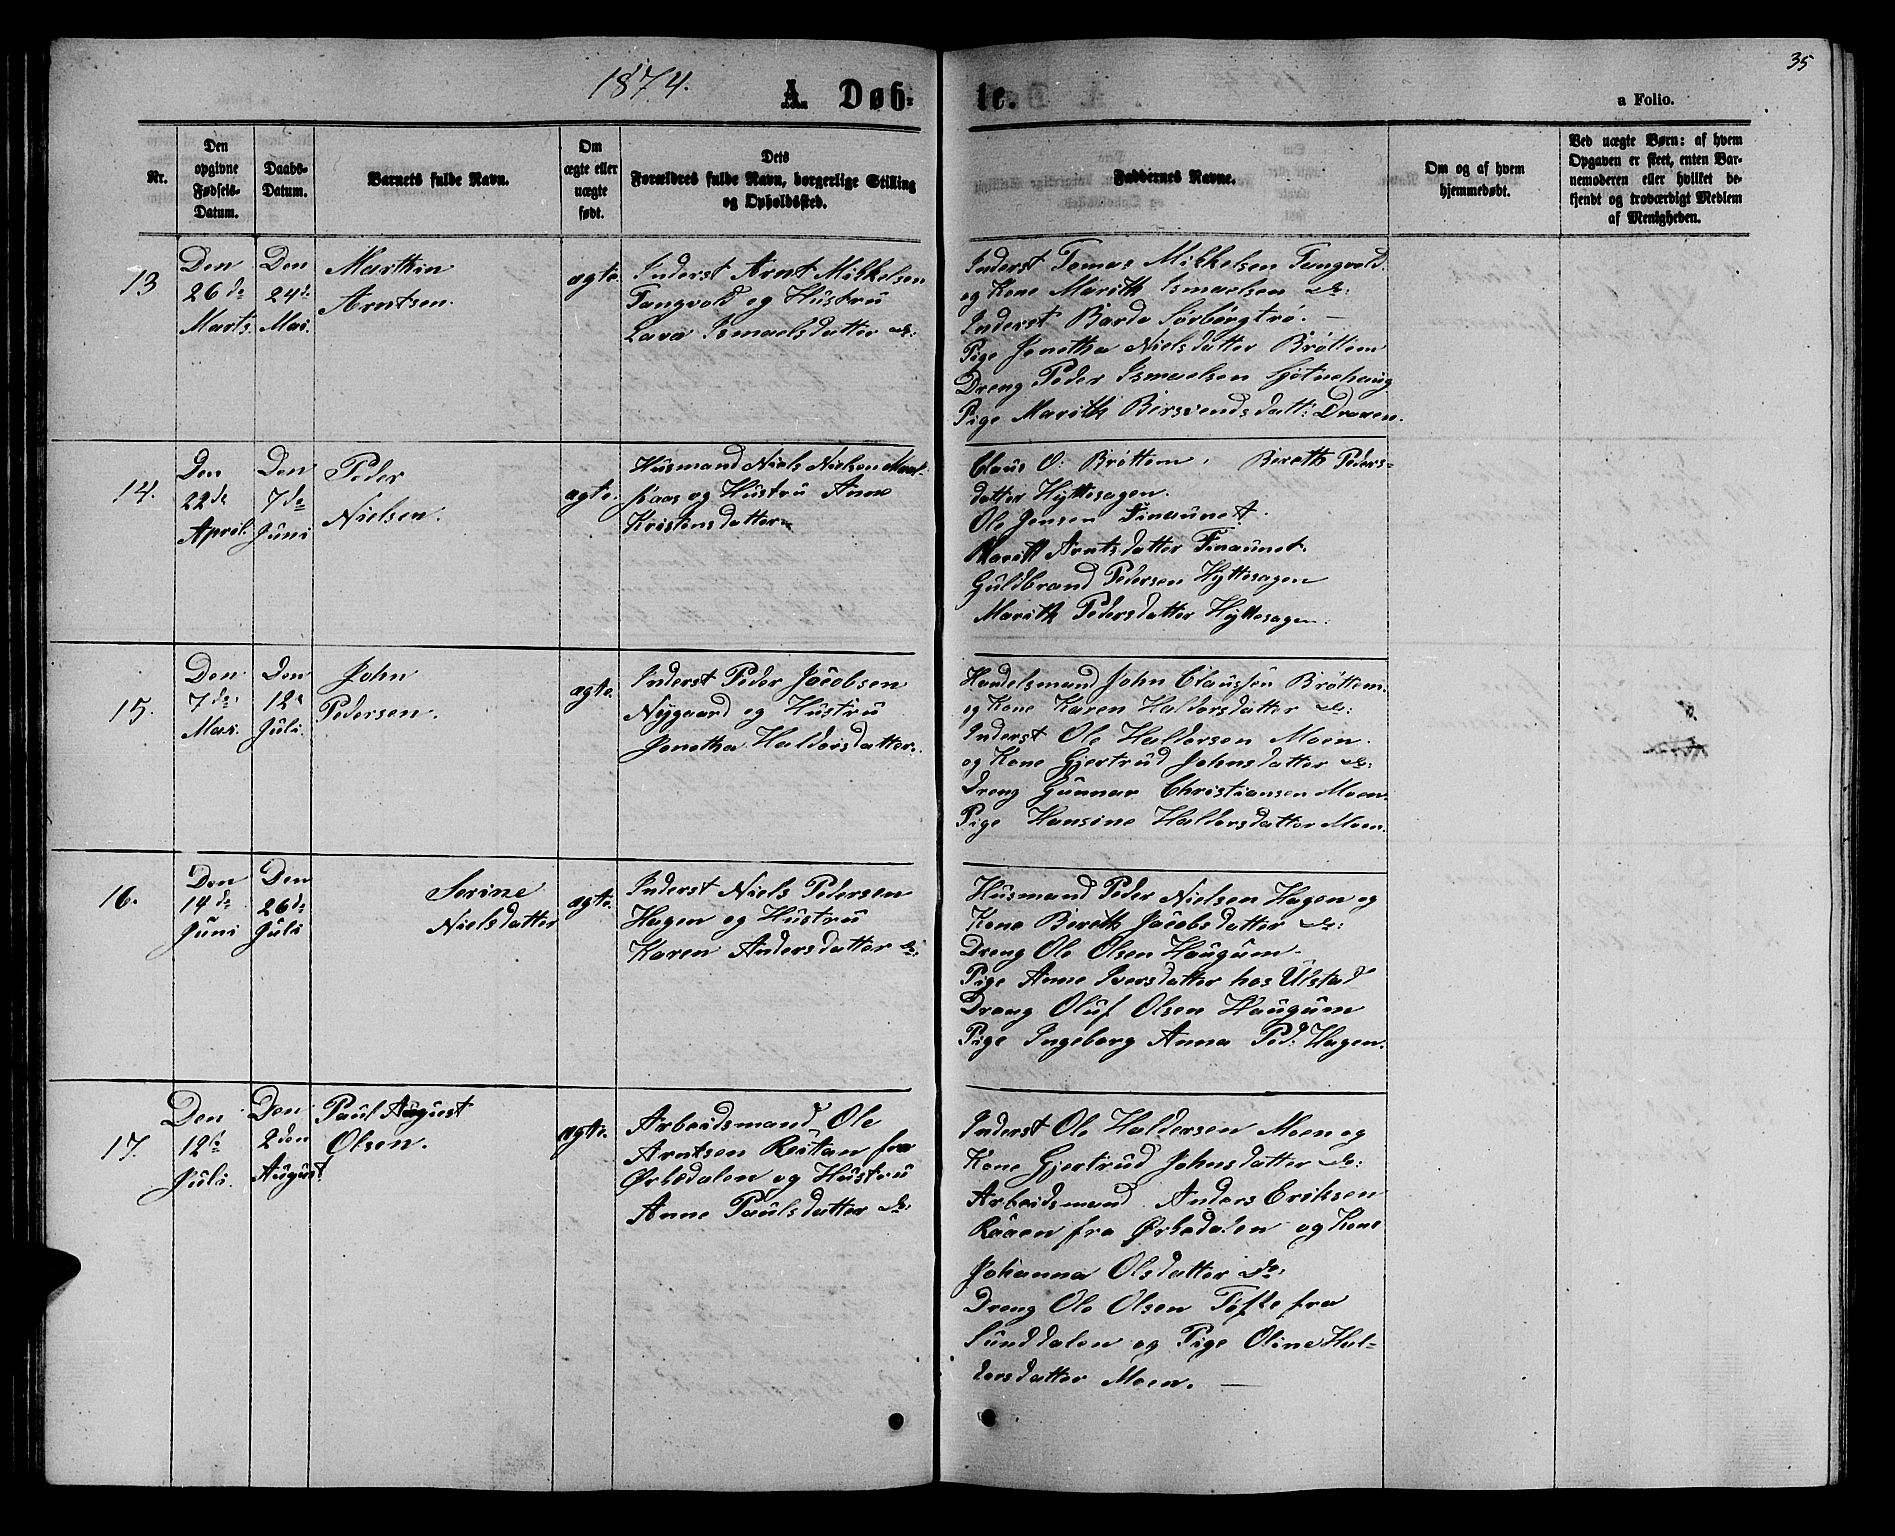 1874.
A Døbte.
35
a Folio.
Nr.
Den opgivne Fødsels-Datum.
Daabs-Datum.
Barnets fulde Navn.
Om ægte eller uægte født.
Dets Forældres fulde Navn, borgerlige Stilling og Opholdssted.
Faddernes Navne.
Om og af hvem hjemmedøbt.
Ved uægte Børn: af hvem Opgaven er skeet, enten Barnemoderen eller hvilket bekjendt og troværdigt Medlem af Menigheden.
13
Den 26de Marts.
Den 24de Mai.
Marthin
Arntsen.
ægte.
Inderst Arnt Mikkelsen
Tangvold og Hustru
Lava Ismaelsdatter do:
Inderst Tomas Mikkelsen Tangvold.
og Kone Marith Ismaelsen do:
Inderst Bardo Sørborgtrø. —
Pige Jonetha Nielsdatter Brøttem
Dreng Peder Ismaelsen Gjøtnehaug
Pige Marith Bersvendsdatt: Draxen.
14.
Den 22de April.
Den 7de Juni
Peder
Nielsen.
ægte.
Husmand Niels Nielsen
og Hustru Anne
Kristensdatter
Claus O: Brøttem, Bereth Peders-
datter Hyttesagen.
Ole Jensen Finaunet.
Marith Arntsdatter Finaunet.
Guldbrand Pedersen Hyttesagen
Marith Pedersdatter Hyttesagen.
15.
Den 7de Mai.
Den 12e Juli.
John
Pedersen.
ægte.
Inderst Peder Jacobsen
Nygaard og Hustru
Jonetha Haldorsdatter.
Handelsmand John Claussen Brøttem.
og Kone Karen Haldorsdatter do:
Inderst Ole Haldorsen Moen.
og Kone Gjertrud Johnsdatter do:
Dreng Gunnar Christiansen Moen.
Pige Hansine Haldorsdatter Moen.
16.
Den 14de Juni
Den 26de Juli
Serine
Nielsdatter
ægte.
Inderst Niels Pedersen
Hagen og Hustru
Karen Andersdatter do:
Husmand Peder Nielsen Hagen og
Kone Bereth Jacobsdatter do:
Dreng Ole Olsen Haugum.
Pige Anne Iversdatter hos Ulstad
Dreng Oluf Olsen Haugum
Pige Ingeborg Anna Ped: Hagen.
17.
Den 12te Juli.
Den 2den August
Paul August
Olsen.
ægte.
Arbeidsmand Ole
Arntsen Reitan fra
Ørkedalen og Hustru
Anne Paulsdatter do:
Inderst Ole Haldorsen Moen og
Kone Gjertrud Johnsdatter do:
Arbeidsmand Anders Eriksen
Raaen fra Ørkedalen og Kone
Johanna Olsdatter do:
Dreng Ole Olsen Tøfte fra
Sunddalen og Pige Oline Hal-
dorsdatter Moen. —